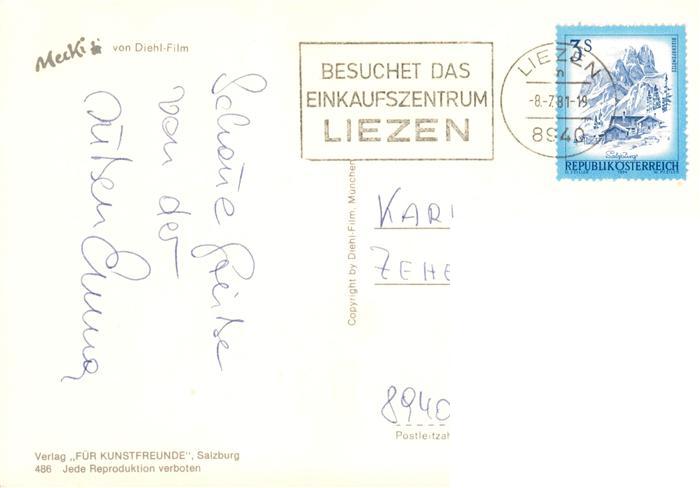 Mecki von Diehl-Film
Schöne Grüße
von der
BESUCHET DAS
EINKAUFSZENTRUM
LIEZEN
LIEZEN
n
-8.-7.81-19
8940
3 S
BISCHOFSMÜTZE
Salzburg
REPUBLIK ÖSTERREICH
1974
Copyright by Diehl-Film, München
KARI
ZEHE
8940
Postleitzah
Verlag „FÜR KUNSTFREUNDE", Salzburg
486 Jede Reproduktion verboten